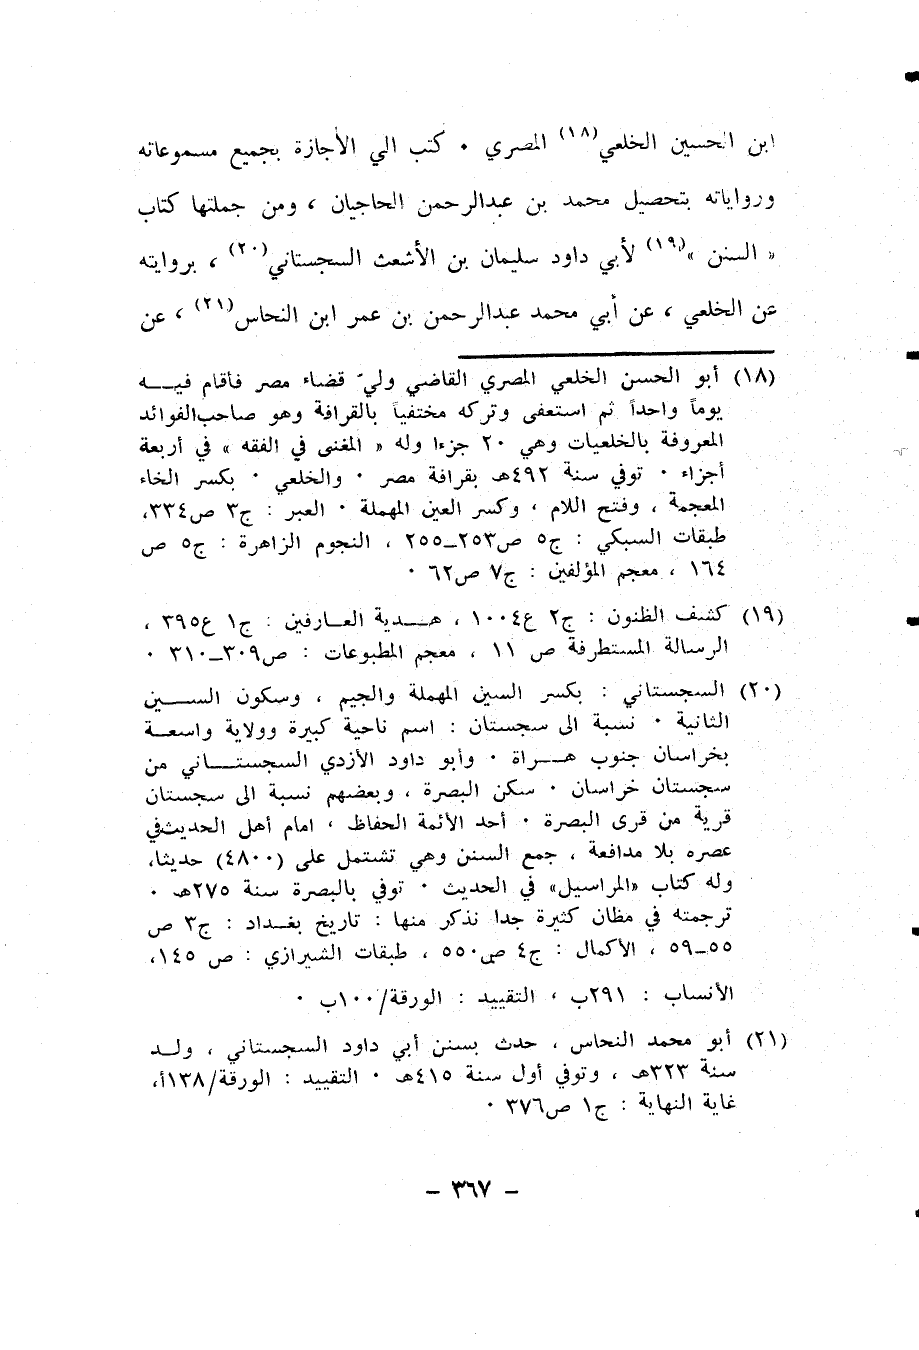 ابن الحسين الخلعي(١٨) المصري ٠ كتب الي الأجازة بجميع مسموعاته
ورواياته بتحصيل محمد بن عبدالرحمن الحاجيان ، ومن جملتها كتاب
« السنن »(١٩) لأبي داود سليمان بن الأشعث السجستاني(٢٠) ، بروايته
عن الخلعي ، عن أبي محمد عبدالرحمن بن عمر ابن النحاس(٢١) ، عن
(١٨) أبو الحسن الخلعي المصري القاضي ولي قضاء مصر فأقام فيـــه
يوماً واحداً ثم استعفى وتركه مختفياً بالقرافة وهو صاحب الفوائد
المعروفة بالخلعيات وهي ٢٠ جزءا وله « المغنى في الفقه » في أربعة
أجزاء ٠ توفي سنة ٤٩٢هـ بقرافة مصر ٠ والخلعي ٠ بكسر الخاء
المعجمة ، وفتح اللام ، وكسر العين المهملة ٠ العبر : ج٣ ص٣٣٤،
طبقات السبكي : ج٥ ص٢٥٣ــ٢٥٥ ، النجوم الزاهرة : ج٥ ص
١٦٤ ، معجم المؤلفين : ج٧ ص٦٢ ٠
(١٩) كشف الظنون : ج٢ ع١٠٠٤ ، هـــدية العــارفين : ج١ ع٣٩٥ ،
الرسالة المستطرفة ص ١١ ، معجم المطبوعات : ص٣٠٩ــ٣١٠ ٠
(٢٠) السجستاني : بكسر السين المهملة والجيم ، وسكون الســـين
الثانية ٠ نسبة الى سجستان : اسم ناحية كبيرة وولاية واسعــة
بخراسان جنوب هـــراة ٠ وأبو داود الأزدي السجستـــاني من
سجستان خراسان ٠ سكن البصرة ، وبعضهم نسبة الى سجستان
قرية من قرى البصرة ٠ أحد الأئمة الحفاظ ، امام أهل الحديث في
عصره بلا مدافعة ، جمع السنن وهي تشتمل على (٤٨٠٠) حديثا،
وله كتاب «المراسيل» في الحديث ٠ توفي بالبصرة سنة ٢٧٥هـ ٠
ترجمته في مظان كثيرة جدا نذكر منها : تاريخ بغــداد : ج٣ ص
٥٥ــ٥٩ ، الأكمال : ج٤ ص٥٥٠ ، طبقات الشيرازي : ص ١٤٥،
الأنساب : ٢٩١ب ، التقييد : الورقة/١٠٠ب ٠
(٢١) أبو محمد النحاس ، حدث بسنن أبي داود السجستاني ، ولــد
سنة ٣٢٣هـ ، وتوفي أول سنة ٤١٥هـ ٠ التقييد : الورقة/١٣٨أ،
غاية النهاية : ج١ ص٣٧٦ ٠
– ٣٦٧ –